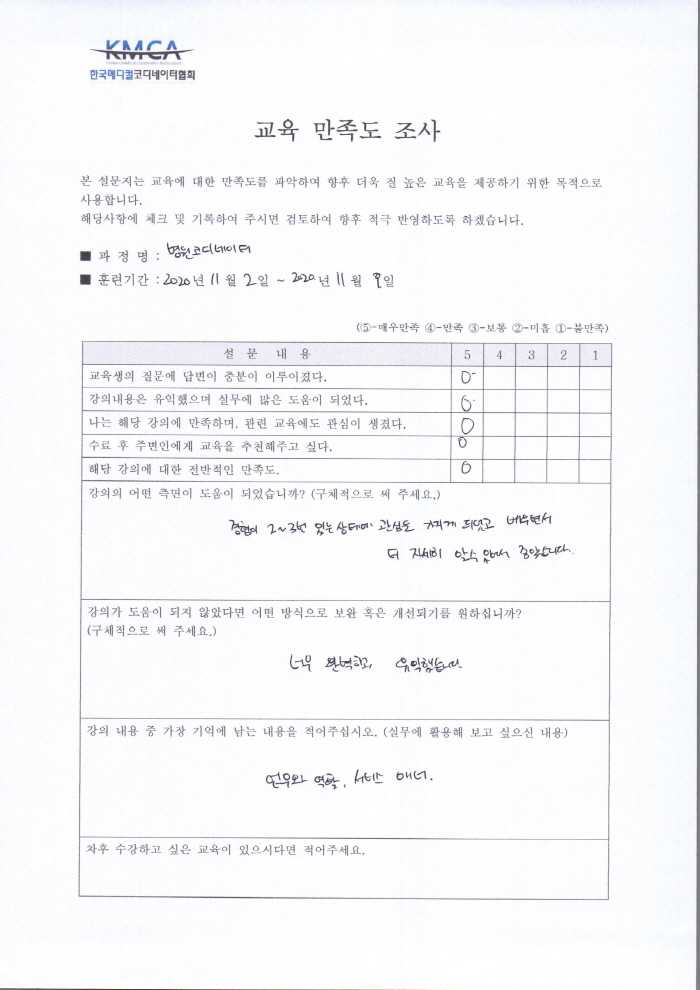 KMCA
Korean Medical Coordinator Association
한국메디컬코디네이터협회
교육 만족도 조사
본 설문지는 교육에 대한 만족도를 파악하여 향후 더욱 질 높은 교육을 제공하기 위한 목적으로
사용합니다.
해당사항에 체크 및 기록하여 주시면 검토하여 향후 적극 반영하도록 하겠습니다.
■ 과 정 명 : 병원코디네이터
■ 훈련기간 : 2020년 11월 2일 ~ 2020년 11월 9일
(⑤-매우만족 ④-만족 ③-보통 ②-미흡 ①-불만족)
설 문 내 용 5 4 3 2 1
교육생의 질문에 답변이 충분이 이루어졌다. O
강의내용은 유익했으며 실무에 많은 도움이 되었다. O
나는 해당 강의에 만족하며, 관련 교육에도 관심이 생겼다. O
수료 후 주변인에게 교육을 추천해주고 싶다. O
해당 강의에 대한 전반적인 만족도. O
강의의 어떤 측면이 도움이 되었습니까? (구체적으로 써 주세요.)
경험이 2~3번 있는상태에 관심도 가지게 되었고 배우면서
더 자세히 알수 있어서 좋았습니다.
강의가 도움이 되지 않았다면 어떤 방식으로 보완 혹은 개선되기를 원하십니까?
(구체적으로 써 주세요.)
너무 완벽하고, 유익했습니다.
강의 내용 중 가장 기억에 남는 내용을 적어주십시오. (실무에 활용해 보고 싶으신 내용)
역할, 서비스 매너.
차후 수강하고 싶은 교육이 있으시다면 적어주세요.